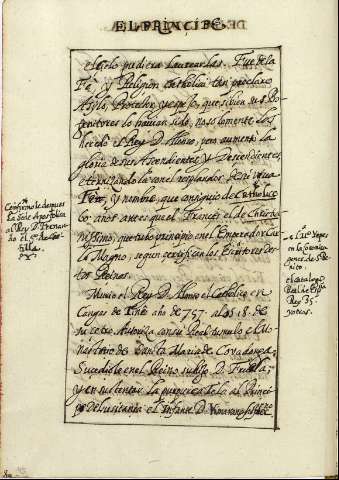 EL PRINCIPE
el cielo pudiera laurearlas. Fue de la
Fè, y Religion Catholica tan preclaro
Asylo, Protector, y espejo, que si bien sus Pro-
genitores lo havian sido, no solamente los
heredò el Rey D. Alonso, pero aumentò la
gloria de sus Ascendientes, y Descendientes,
eternizandola con el resplandor de
y nombre, que consiguio de Catholico
años antes que el Frances el de Christia-
nissimo, que tubo principio en el Emperador Car
lo Magno, segun certifican los Escritores de en-
tos Reinas.
Murio el Rey D. Alonso el Catholico en
Cangas de Tineo año de 757. a los 18. de
su cetro. Autoriza con su Real tumulo el Mo-
nasterio de Santa Maria de Covadonga.
Sucediole en el Reino su hijo D. Fruela,
y en sustentar la purpura Tolo al Princi-
pe de Lusitania el Infante D. Vimarano
Confirmole despues
la Sede Apostolica
al Rey D. Fernan-
do el 5º de Cas-
tilla.
a. Yepes
en la
gen de S. Be-
nito.
el Catalogo
Real de Esp.
Rey 35.